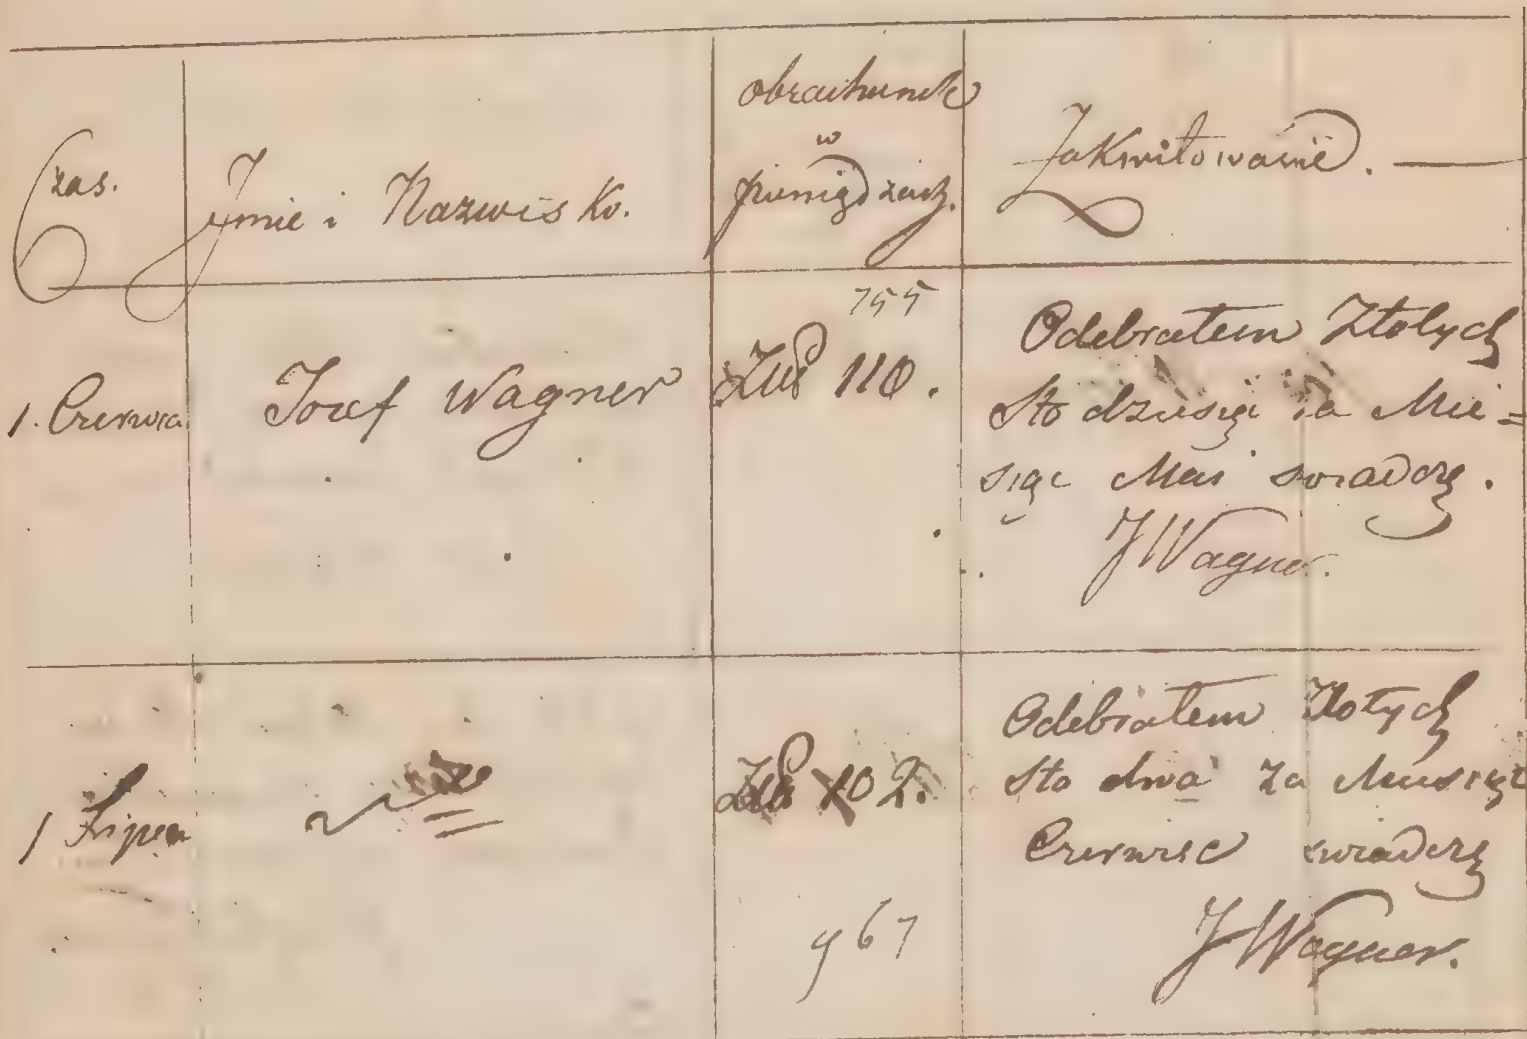 Czas.
Jmie i Nazwisko.
obrachunek
w
pieniądzach.
Zakwitowanie.
1. Czerwca
Jozef Wagner
755
Złp 110.
Odebrałem Złotych
Sto dziesięć za Mie=
siąc Mai swiadczę.
J Wagner.
1 Lipca
Złp 102.
967
Odebrałem Złotych
Sto dwa za Miesiąc
Czerwiec swiadczę
J Wagner.